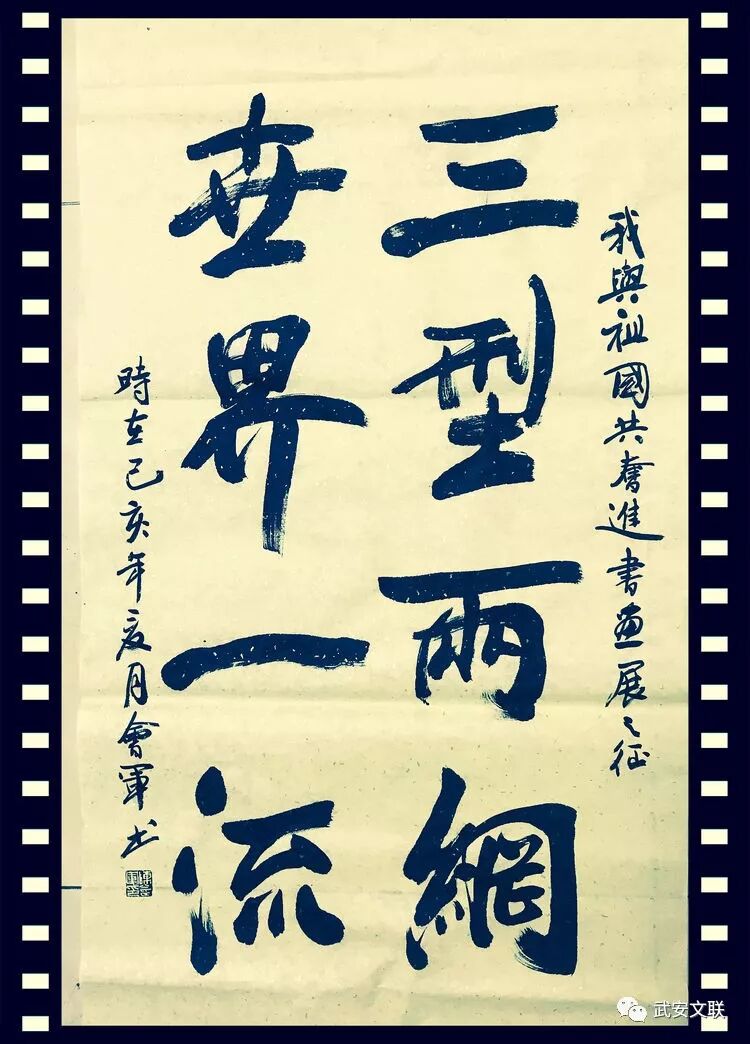 我與祖國共奮進書畫展之征
三型兩網
世界一流
時在己亥年夏月會軍书
武安文联